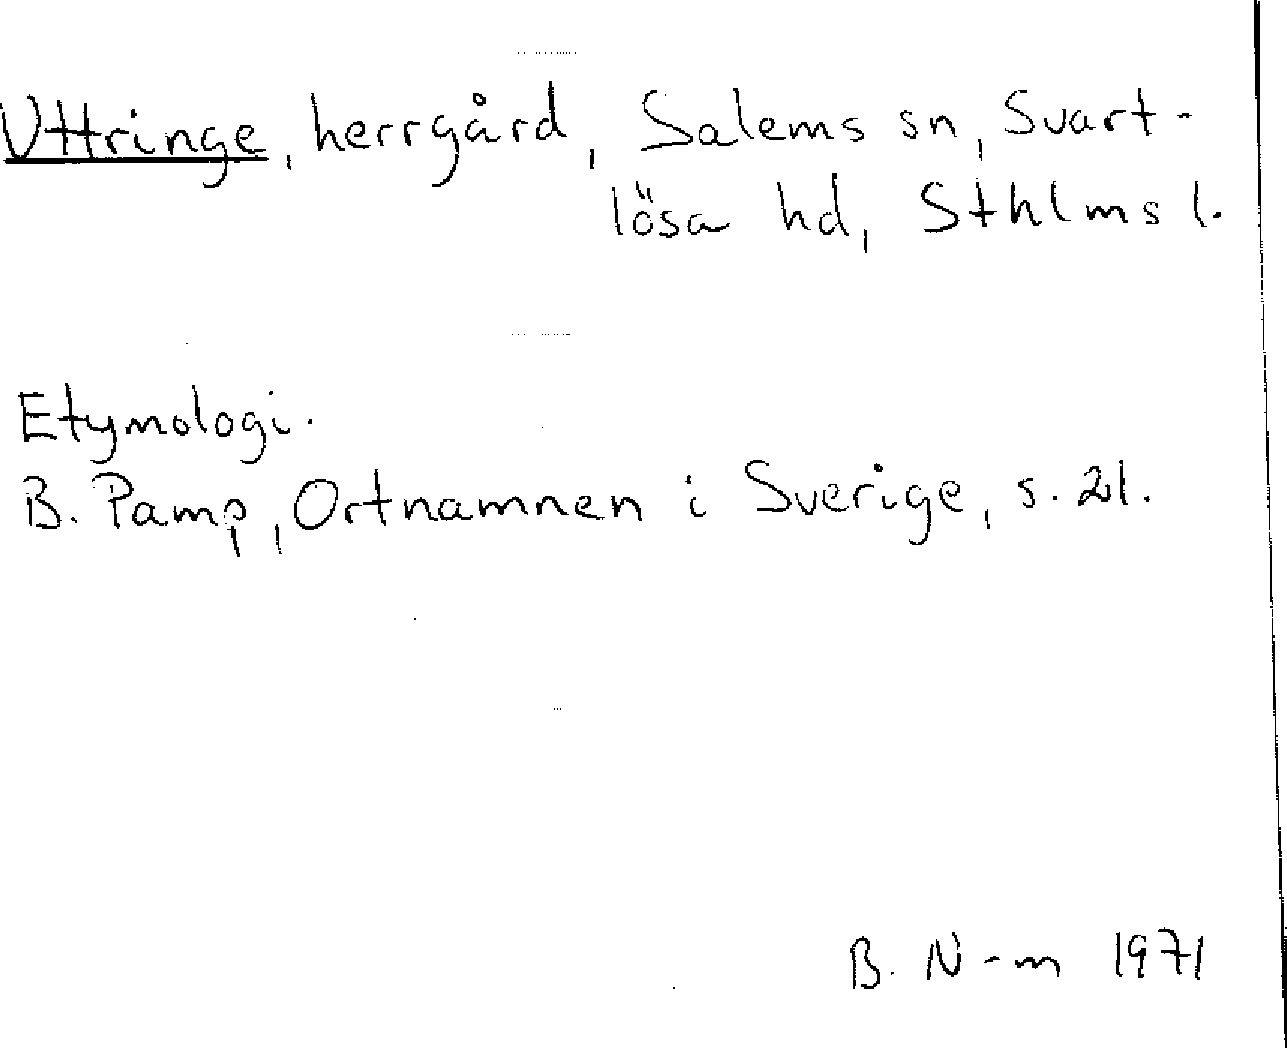 Uttringe, herrgård, Salems sn, Svart-
lösa hd, Sthlms l.
Etymologi.
B. Pamp, Ortnamnen i Sverige, s. 21.
B. N-m 1971